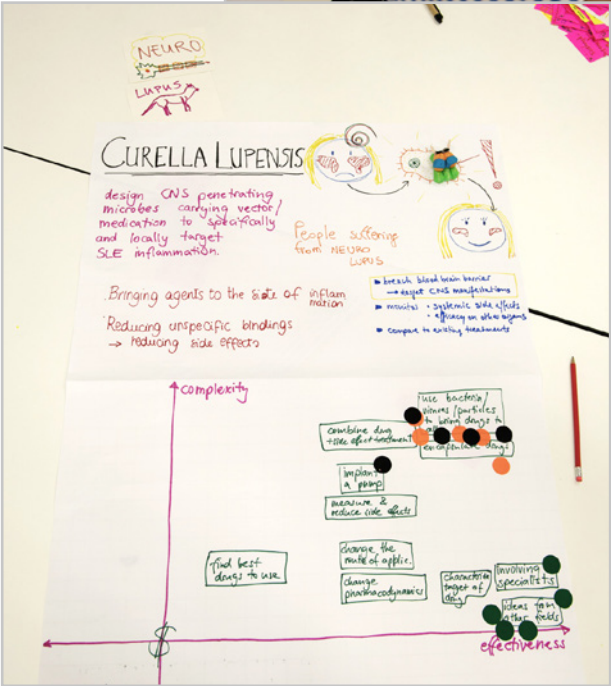 NEURO
LUPUS
CURELLA LUPENSIS
design CNS penetrating
microbes carrying vector/
medication to specifically
and locally target
SLE inflammation.
People suffering
from NEURO
LUPUS
Bringing agents to the site of inflam
mation
Reducing unspecific bindings
→ reducing side effects
breach blood brain barrier
→ target CNS manifestations
monitor • systemic side effects
• efficacy on other organs
compare to existing treatments
complexity
use bacteria/
viruses/particles
to bring drugs to
combine drug
+side effect treatment
encapsulate drugs
implant
a pump
measure &
reduce side effects
change the
route of applic.
find best
drugs to use
change
pharmacodynamics
target of
drug
involving
specialists
ideas from
other fields
$
effectiveness